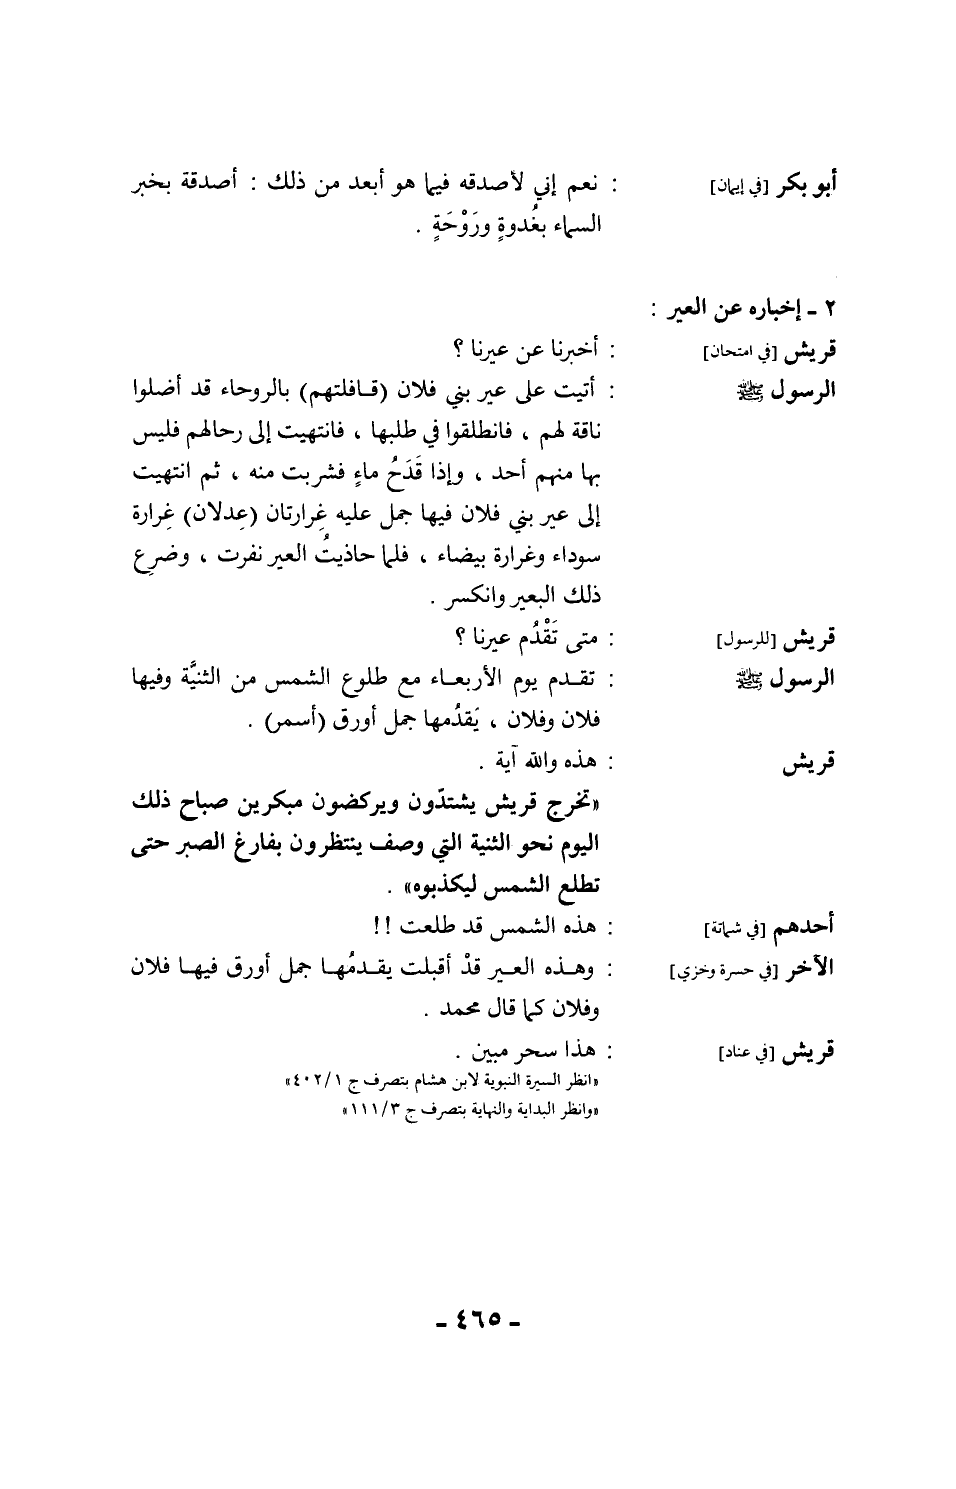 أبو بكر [في إيمان] : نعم إني لأصدقه فيما هو أبعد من ذلك : أصدقة بخبر
السماء بغُدوةٍ ورَوْحَةٍ .
٢ ـ إخباره عن العير :
قريش [في امتحان] : أخبرنا عن عيرنا ؟
الرسول ﷺ : أتيت على عير بني فلان (قافلتهم) بالروحاء قد أضلوا
ناقة لهم ، فانطلقوا في طلبها ، فانتهيت إلى رحالهم فليس
بها منهم أحد ، وإذا قَدَحُ ماءٍ فشربت منه ، ثم انتهيت
إلى عير بني فلان فيها جمل عليه غِرارتان (عِدلان) غِرارة
سوداء وغرارة بيضاء ، فلما حاذيتُ العير نفرت ، وضرِع
ذلك البعير وانكسر .
قريش [للرسول] : متى تَقْدُم عيرنا ؟
الرسول ﷺ : تقدم يوم الأربعاء مع طلوع الشمس من الثنيَّة وفيها
فلان وفلان ، يَقدُمها جمل أورق (أسمر) .
قريش : هذه والله آية .
«تخرج قريش يشتدّون ويركضون مبكرين صباح ذلك
اليوم نحو الثنية التي وصف ينتظرون بفارغ الصبر حتى
تطلع الشمس ليكذبوه» .
أحدهم [في شماتة] : هذه الشمس قد طلعت !!
الآخر [في حسرة وخزي] : وهذه العير قدْ أقبلت يقدمُها جمل أورق فيها فلان
وفلان كما قال محمد .
قريش [في عناد] : هذا سحر مبين .
«انظر السيرة النبوية لابن هشام بتصرف ج ٤٠٢/١»
«وانظر البداية والنهاية بتصرف ج ١١١/٣»
ـ ٤٦٥ ـ